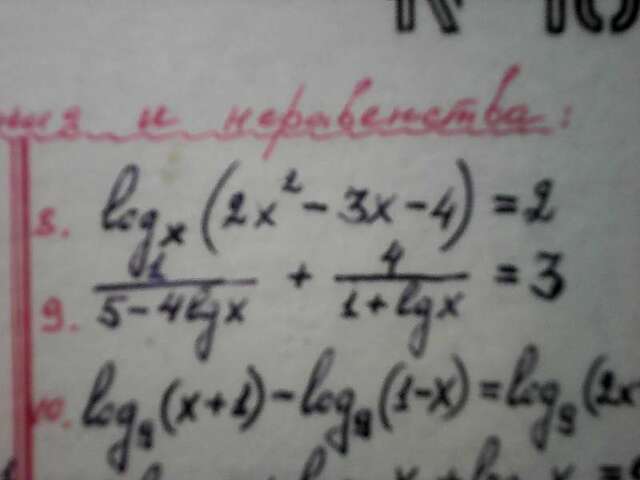 и неравенства:
8. logₓ(2x² - 3x - 4) = 2
9. 1/(5 - 4lgx) + 4/(1 + lgx) = 3
10. log₉(x + 1) - log₉(1 - x) = log₉(2x